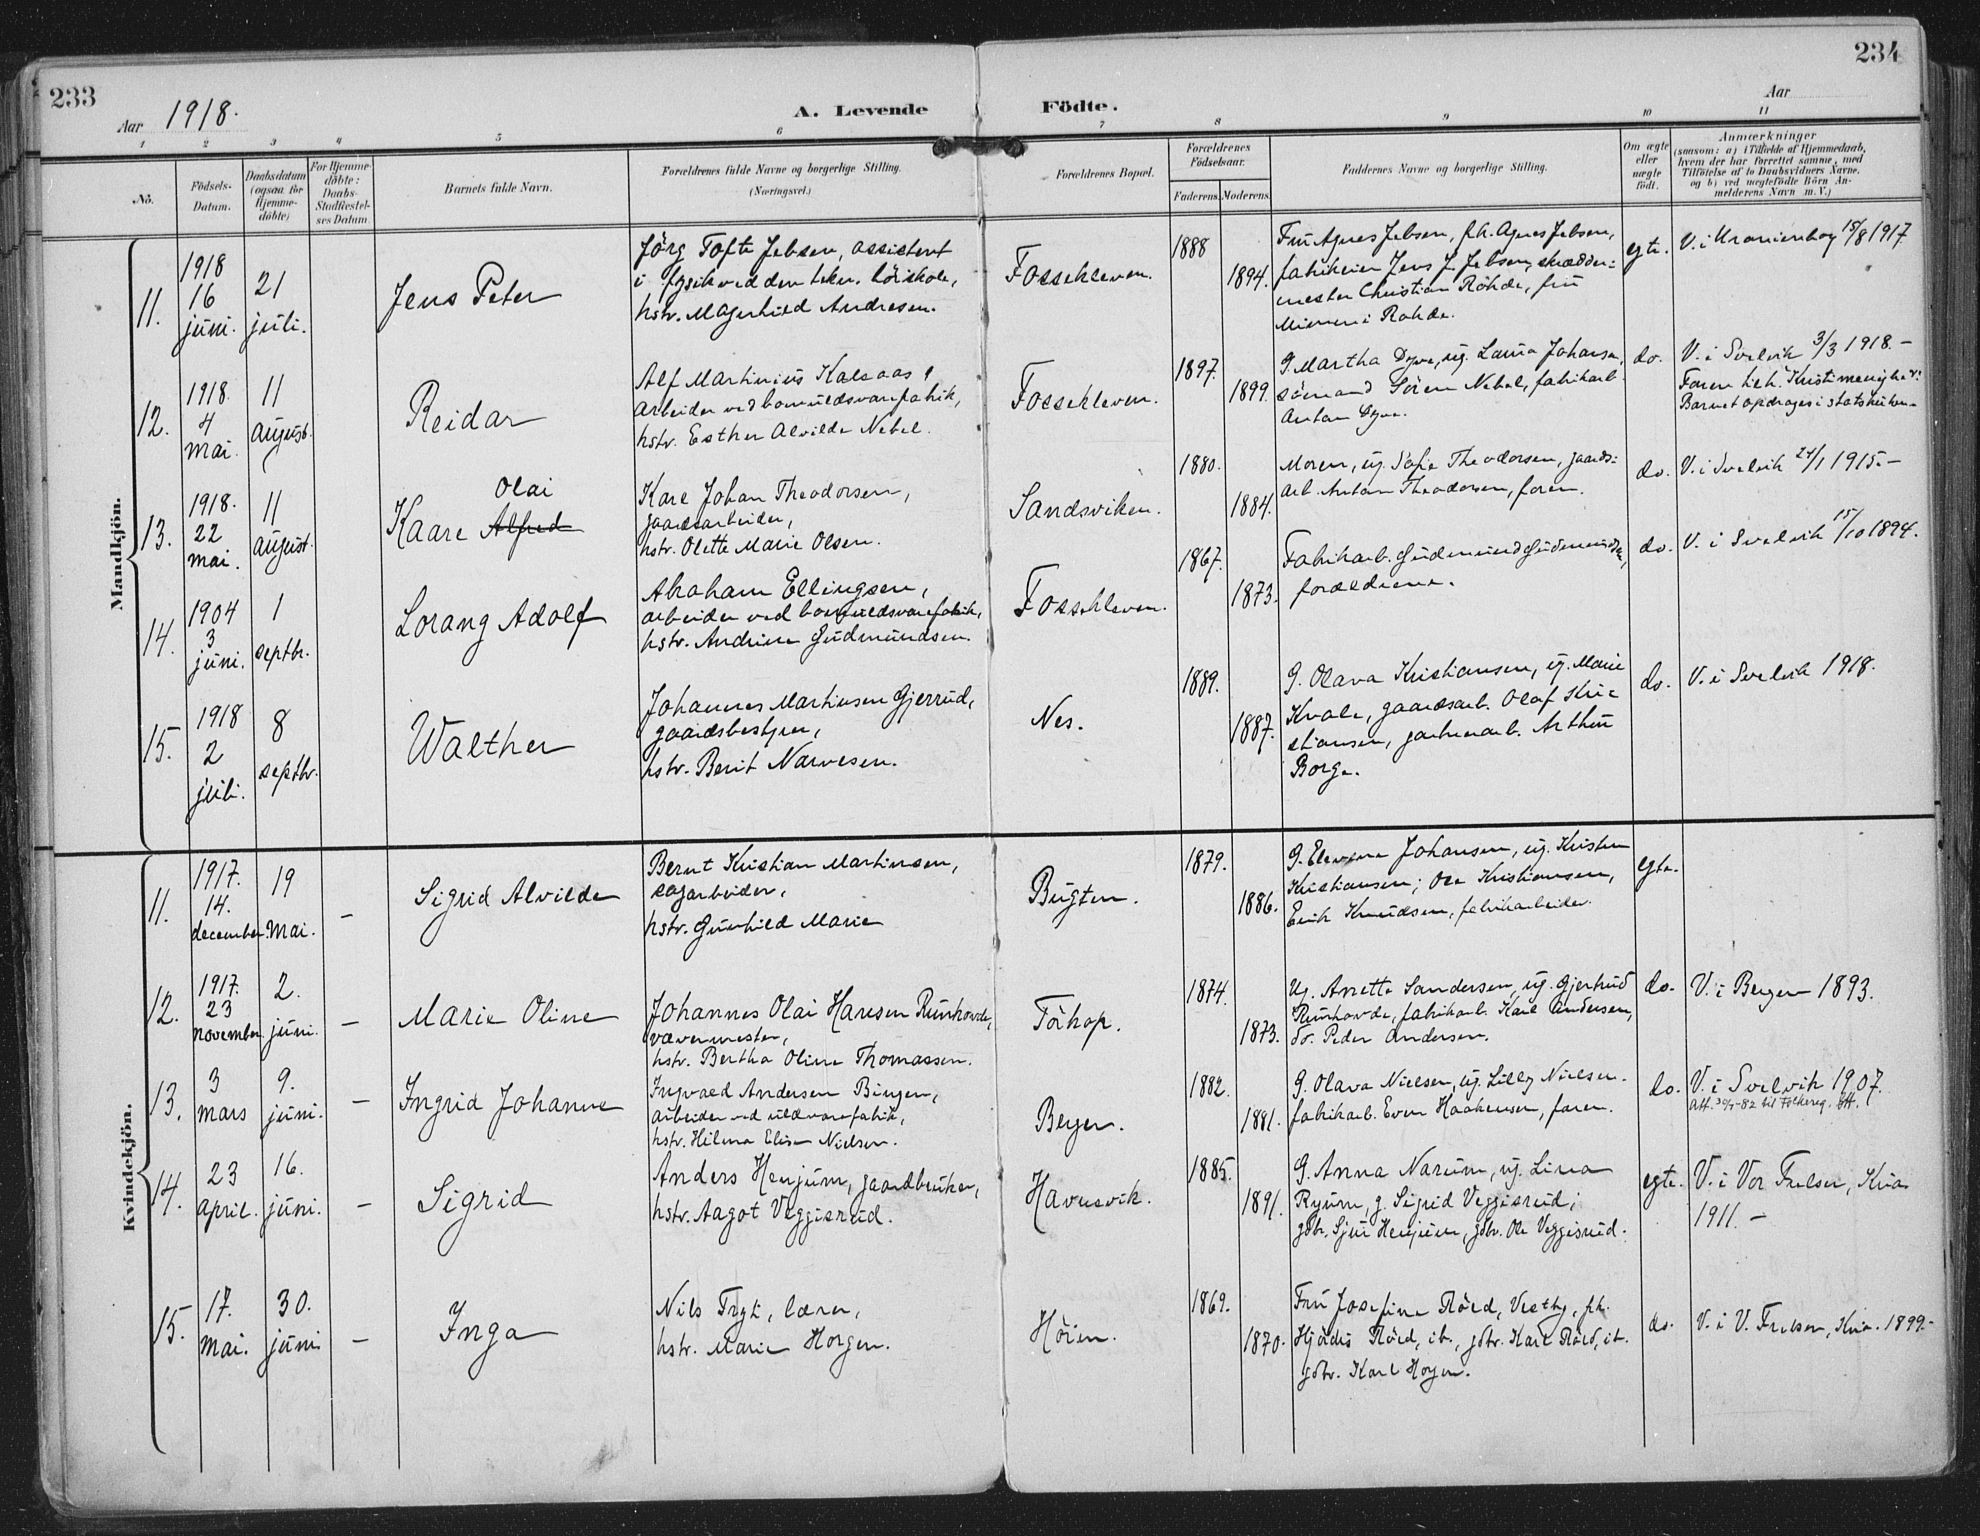 233
234
Aar 1918.
A. Levende
Födte.
Aar
1 2 3 4 5 6 7 8 9 10 11
No.
Födsels-
Datum.
Daabsdatum
(ogsaa for
Hjemme-
döbte)
For Hjemme-
döbte:
Daabs-
Stadfæstel-
ses Datum
Barnets fulde Navn.
Forældrenes fulde Navne og borgerlige Stilling.
(Næringsvei.)
Forældrenes Bopæl.
Forældrenes
Födselsaar.
Faderens. Moderens.
Faddernes Navne og borgerlige Stilling.
Om ægte
eller
uægte
födt.
Anmærkninger
(saasom: a) i Tilfælde af Hjemmedaab,
hvem der har forrettet samme, med
Tilföielse af to Daabsvidners Navne,
og b) ved uegtefödte Börn An-
melderens Navn m. V.)
Mandkjön.
11.
1918
16
juni.
21
juli.
Jens Peter
Jörg Tofte Jebsen, assistent
i fysik ved den tekn. höiskole,
hstr. Magnhild Andresen.
Fossekleven.
1888
1894.
Fru Agnes Jebsen, frk. Agnes Jebsen,
fabrikeier Jens J. Jebsen, skrædder=
mester Christian Röhde, fru
Rohde.
egte.
V. i Uranienborg 15/8 1917
12.
1918.
4
mai.
11
august.
Reidar
Alf Martinius Kalsaas
arbeider ved bomuldsvarefabrik,
hstr. Esther Alvilde Nebel.
Fossekleven.
1897.
1899.
G. Martha Dyve, ug. Laura Johansen,
sömand Sören Nebel, fabrikarb.
Anton Dyve.
do.
V. i Svelvik 3/3 1918.-
Faren tilh. Kristi menighed.
Barnet opdrages i statskirken.
13.
1918.
22
mai.
11
august.
Olai
Kaare Alfred
Karl Johan Theodorsen,
gaardsarbeider,
hstr. Olette Marie Olsen.
Sandsviken.
1880.
1884.
Moren, ug. Sofie Theodorsen, gaards=
arb. Anton Theodorsen, faren.
do.
V. i Svelvik 24/1 1915.-
14.
1904
3
juni.
1
septbr.
Lorang Adolf
Abraham Ellingsen,
arbeider ved bomuldsvarefabrik,
hstr. Andrine Gudmundsen.
Fossekleven.
1867.
1873.
Fabrikarb. Gudmund Gudmundsen,
forældrene.
do.
V. i Svelvik 15/10 1894.
15.
1918
2
juli.
8
septbr.
Walther
Johannes Martinsen Gjerrud,
gaardsbestyrer,
hstr. Berit Narvesen.
Nes.
1889.
1887.
G. Olava Kristiansen, ug. Marie
Kvale, gaardsarb. Olaf Kri=
stiansen, gartnerarb. Arthur
Borge.
do.
V. i Svelvik 1918.
Kvindekjön.
11.
1917.
14.
december.
19
mai.
-
Sigrid Alvilde
Bernt Kristian Martinsen,
sagarbeider,
hstr. Gunhild Marie
Bugten.
1879.
1886.
G. Elevine Johansen, ug. Kristen
Kristiansen; Ole Kristiansen,
Erik Knudsen, fabrikarbeider.
egte.
12.
1917.
23
november.
2.
juni.
-
Marie Oline
Johannes Olai Hansen Runhovde,
vævermester,
hstr. Bertha Oline Thomassen.
Törkop.
1874.
1873.
Ug. Anette Sandersen, ug. Gjertrud
Runhovde, fabrikarb. Karl Andersen,
do. Peder Andersen.
do.
V. i Berger 1893.
13.
3
mars
9.
juni.
-
Ingrid Johanne
Ingvald Andersen Bingen,
arbeider ved uldvarefabrik,
hstr. Hilma Elise Nielsen.
Berger.
1882.
1881.
G. Olava Nielsen, ug. Lilly Nielsen.
fabrikarb. Even Haakensen, faren.
do.
V. i Svelvik 1907.
Att. 30/7-82 til Folkereg.
14.
23
april.
16.
juni.
-
Sigrid
Anders Henjum, gaardbruker,
hstr. Aagot Veggisrud.
Havnsvik.
1885.
1891.
G. Anna Narum, ug. Lina
Ryum, g. Sigrid Veggisrud;
gdbr. Sjur Henjum, gdbr. Ole Veggisrud.
egte.
V. i Vor Frelser, Kria
1911.-
15.
17.
mai.
30.
juni.
-
Inga
Nils Trygt, lærer,
hstr. Marie Horgen.
Höien.
1869.
1870.
Fru Josefine Röed, Vestby, frk.
Hjördis Röed, ib., gdbr. Karl Röed, ib.
gdbr. Karl Horgen.
do.
V. i V. Frelser, Kria. 1899.-